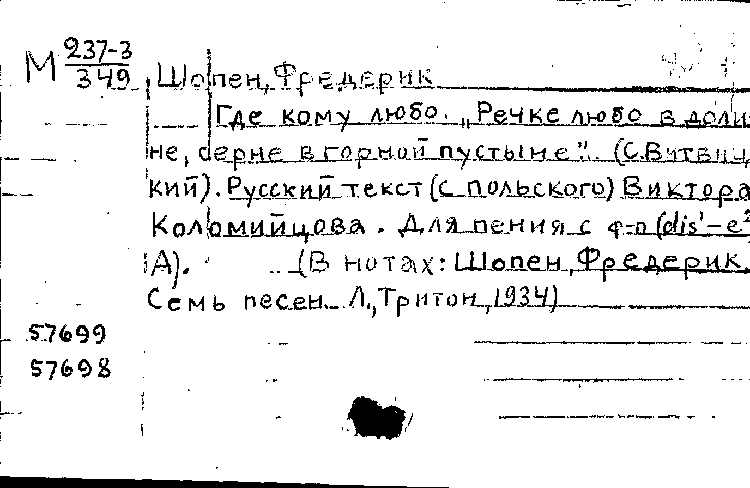 М 237-3
349
Шопен, Фредерик
Где кому любо. „Речке любо в доли
не, серне в горной пустыне". (С. Витвиц
кий). Русский текст (с польского) Виктора
Коломийцова. Для пения с ф-п (dis'-e²
А). (В нотах: Шопен, Фредерик.
Семь песен. Л., Тритон, 1934)
57699
57698